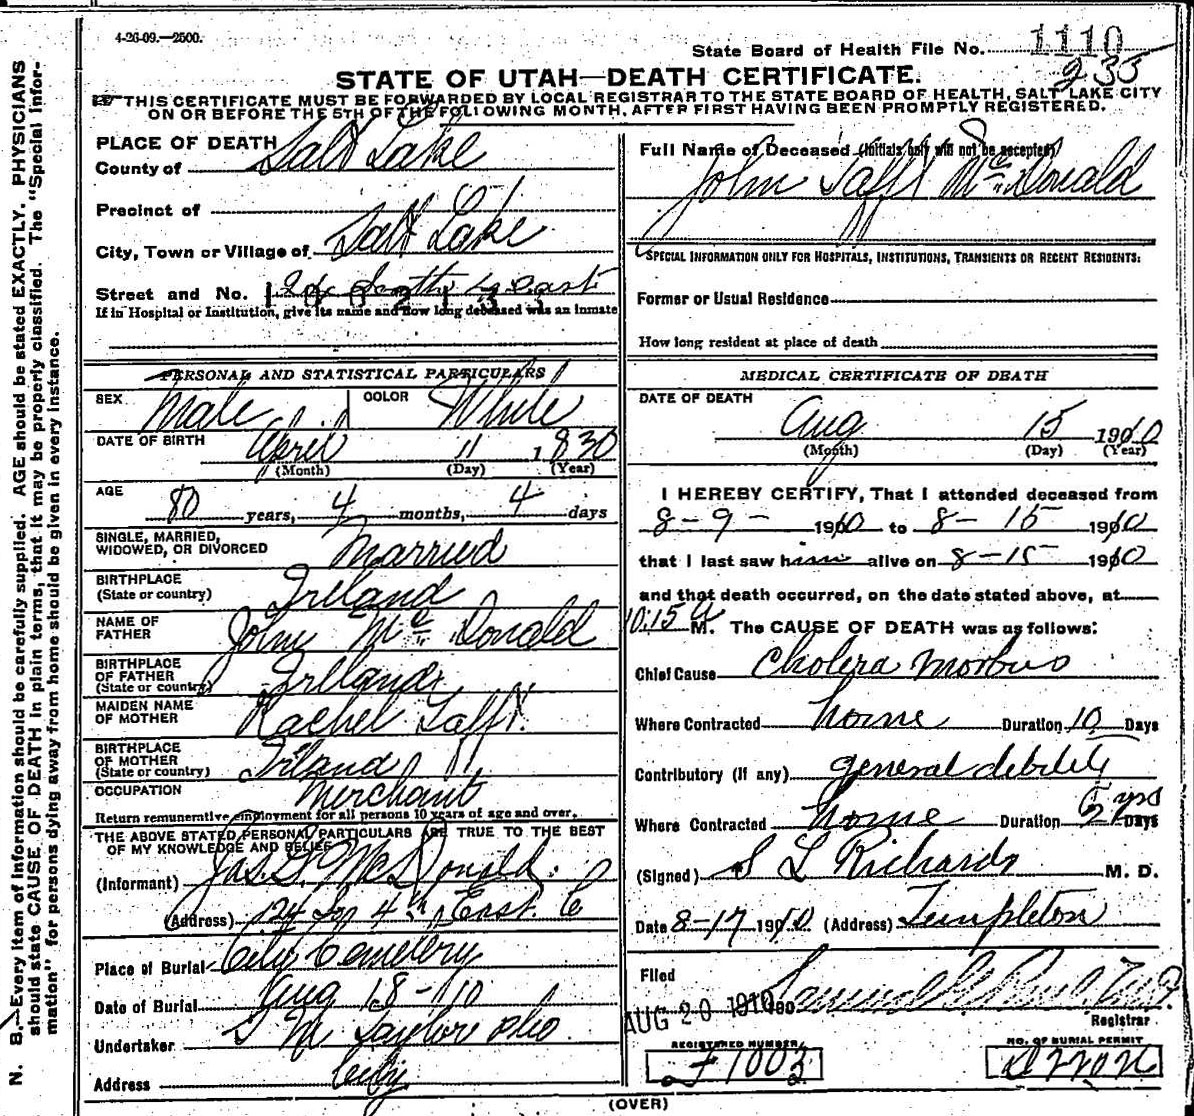 4-26-09.—2500.
State Board of Health File No. 1110
235
STATE OF UTAH—DEATH CERTIFICATE.
THIS CERTIFICATE MUST BE FORWARDED BY LOCAL REGISTRAR TO THE STATE BOARD OF HEALTH, SALT LAKE CITY
ON OR BEFORE THE 5TH OF THE FOLLOWING MONTH, AFTER FIRST HAVING BEEN PROMPTLY REGISTERED.
PLACE OF DEATH
County of Salt Lake
Precinct of
City, Town or Village of Salt Lake
Street and No. East
If in Hospital or Institution, give its name and how long deceased was an inmate
PERSONAL AND STATISTICAL PARTICULARS
SEX Male COLOR White
DATE OF BIRTH April 11 1830
(Month) (Day) (Year)
AGE
80 years, 4 months, 4 days
SINGLE, MARRIED,
WIDOWED, OR DIVORCED Married
BIRTHPLACE
(State or country) Ireland
NAME OF
FATHER John Mc Donald
BIRTHPLACE
OF FATHER
(State or country) Irlland
MAIDEN NAME
OF MOTHER Rachel Tafft
BIRTHPLACE
OF MOTHER
(State or country) Irland
OCCUPATION Merchant
Return remunerative employment for all persons 10 years of age and over.
THE ABOVE STATED PERSONAL PARTICULARS ARE TRUE TO THE BEST
OF MY KNOWLEDGE AND BELIEF
(Informant) Jas. G. McDonald.
(Address) 124 So 4th East. C
Place of Burial City Cemetery
Date of Burial Aug 18-10
Undertaker S M Taylor &co
Address City
Full Name of Deceased (Initials only will not be accepted)
John Tafft McDonald
SPECIAL INFORMATION ONLY FOR HOSPITALS, INSTITUTIONS, TRANSIENTS OR RECENT RESIDENTS:
Former or Usual Residence
How long resident at place of death
MEDICAL CERTIFICATE OF DEATH
DATE OF DEATH
Aug 15 1910
(Month) (Day) (Year)
I HEREBY CERTIFY, That I attended deceased from
8-9- 1910 to 8-15 1910
that I last saw him alive on 8-15 1910
and that death occurred, on the date stated above, at
10:15 A M. The CAUSE OF DEATH was as follows:
Chief Cause Cholera Morbus
Where Contracted home Duration 10 Days
Contributory (if any) general debility
Where Contracted home Duration 2 yrs Days
(Signed) S L Richards M. D.
Date 8-17 1910 (Address) Templeton
Filed
AUG 20 1910
Registrar
REGISTERED NUMBER
NO. OF BURIAL PERMIT
(OVER)
N. B.—Every item of information should be carefully supplied. AGE should be stated EXACTLY. PHYSICIANS
should state CAUSE OF DEATH in plain terms, that it may be properly classified. The "Special Infor-
mation" for persons dying away from home should be given in every instance.